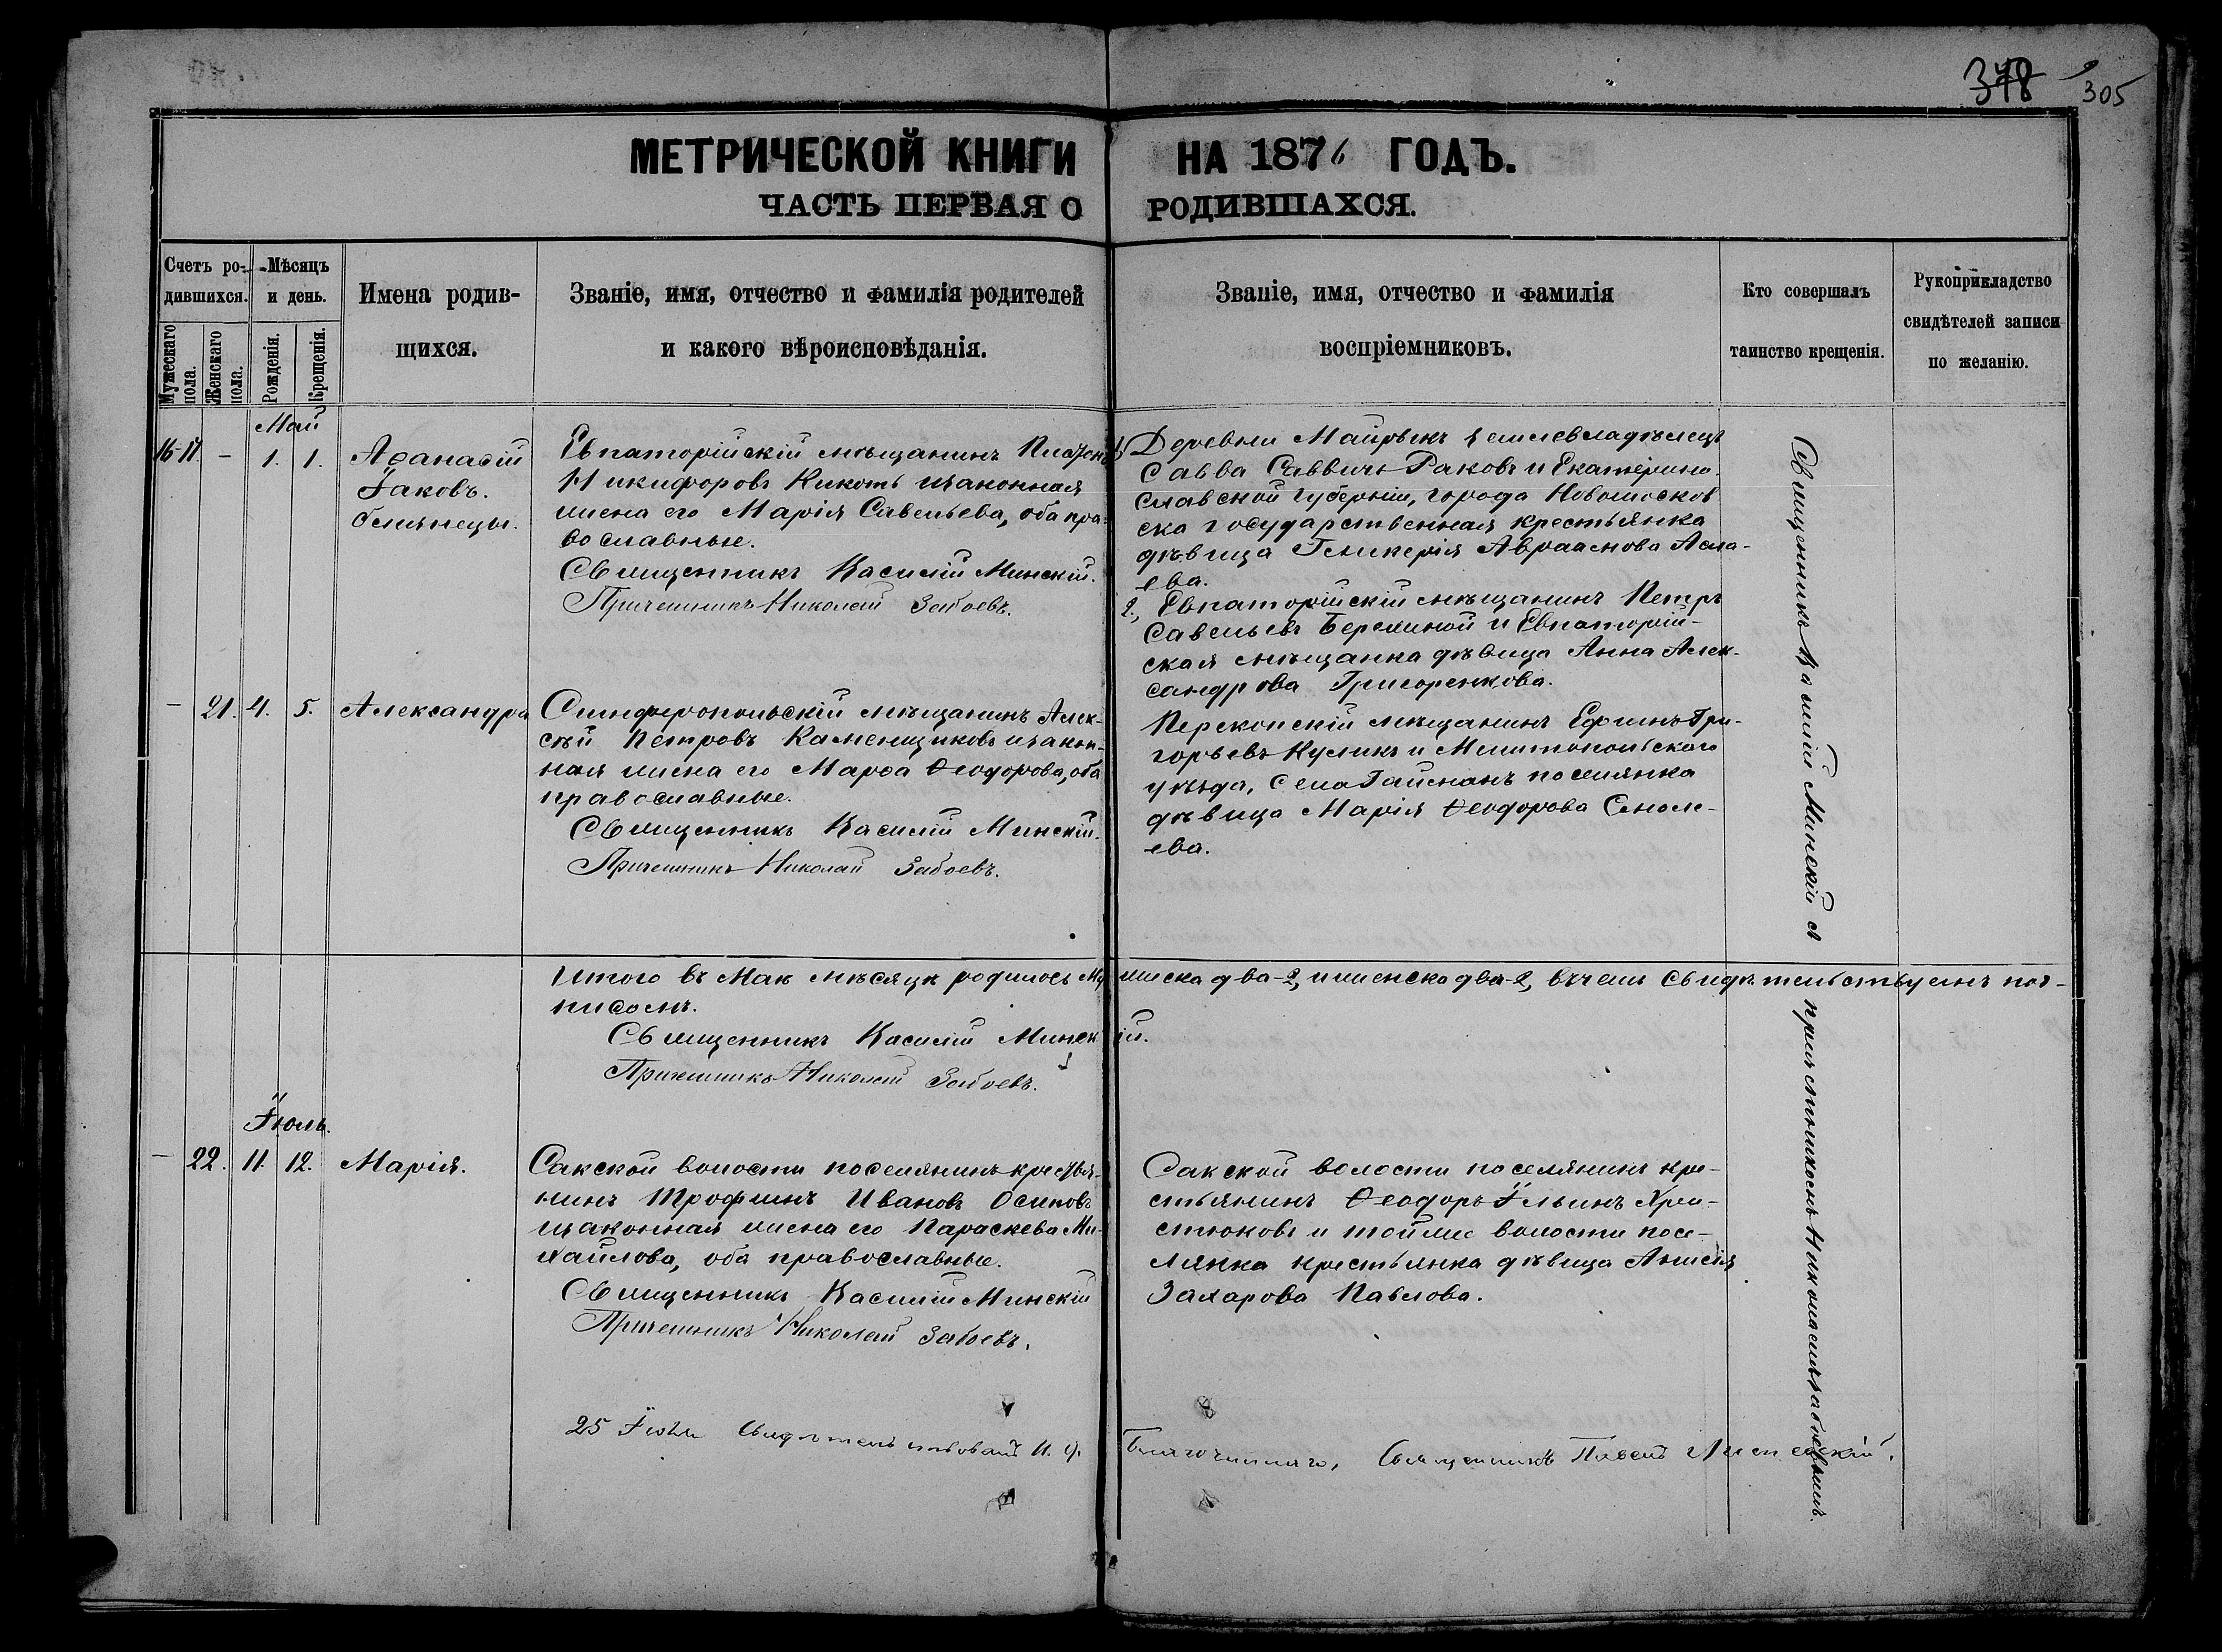 378 305
МЕТРИЧЕСКОЙ КНИГИ НА 1876 ГОДЪ.
ЧАСТЬ ПЕРВАЯ О РОДИВШАХСЯ.
Счетъ ро-
дившихся.
Мужескаго пола.
Женскаго пола.
Мѣсяцъ
и день.
Рожденія.
Крещенія.
Имена родив-
щихся.
Званіе, имя, отчество и фамилія родителей
и какого вѣроисповѣданія.
Званіе, имя, отчество и фамилія
воспріемниковъ.
Кто совершалъ
таинство крещенія.
Рукоприкладство
свидѣтелей записи
по желанію.
Май
16-17. - 1. 1.
Аѳанасій
Іаковъ.
близнецы.
Евпаторійскій мѣщанинъ Платонъ
Никифоровъ Кикоть изаконная
жена его Марія Савельева, оба пра-
вославные.
Священникъ Василій Минскій.
Причетникъ Николай Забоевъ.
1, Деревни Майрыкъ землевладѣлецъ
Савва Саввичъ Раковъ и Екатерино-
славской губерніи, города Новомосков
ска государственная крестьянка
дѣвица Гликерія Авраамова
ева.
2, Евпаторійскій мѣщанинъ Петръ
Савельевъ Бережной и Евпаторій-
ская мѣщанка дѣвица Анна Алек-
сандрова Григоренкова.
- 21. 4. 5. Александра
Симферопольскій мѣщанинъ Алек-
сѣй Петровъ Каменщиковъ изакон-
ная жена его Марѳа Ѳеодорова, оба
православные.
Священникъ Василій Минскій.
Причетникъ Николай Забоевъ.
Перекопскій мѣщанинъ Ефимъ Гри-
горьевъ Куликъ и Мелитопольскаго
уѣзда, села Гайманъ поселянка
дѣвица Марія Ѳеодорова
ева.
Итого въ Маѣ мѣсяцѣ родилось мужеска два-2, и женска два-2, въ чемъ свидѣтельствуемъ под-
писомъ.
Священникъ Василій Минскій.
Причетникъ Николай Забоевъ.
Іюль.
- 22. 11. 12. Марія.
Сакской волости поселянинъ крестья-
нинъ Трофимъ Ивановъ Осиповъ
изаконная жена его Параскева Ми-
хайлова, оба православные.
Священникъ Василій Минскій
Причетникъ Николай Забоевъ.
Сакской волости поселянинъ кре-
стьянинъ Ѳеодоръ Ильинъ Хри-
стюковъ и тойже волости посе-
лянка крестьянка дѣвица Анисія
Захарова Павлова.
Священникъ Василій Минскій съ причетникомъ Николаемъ Забоевымъ.
25 Іюля Свидѣтельствовалъ И. д. Благочиннаго, Священникъ Павелъ